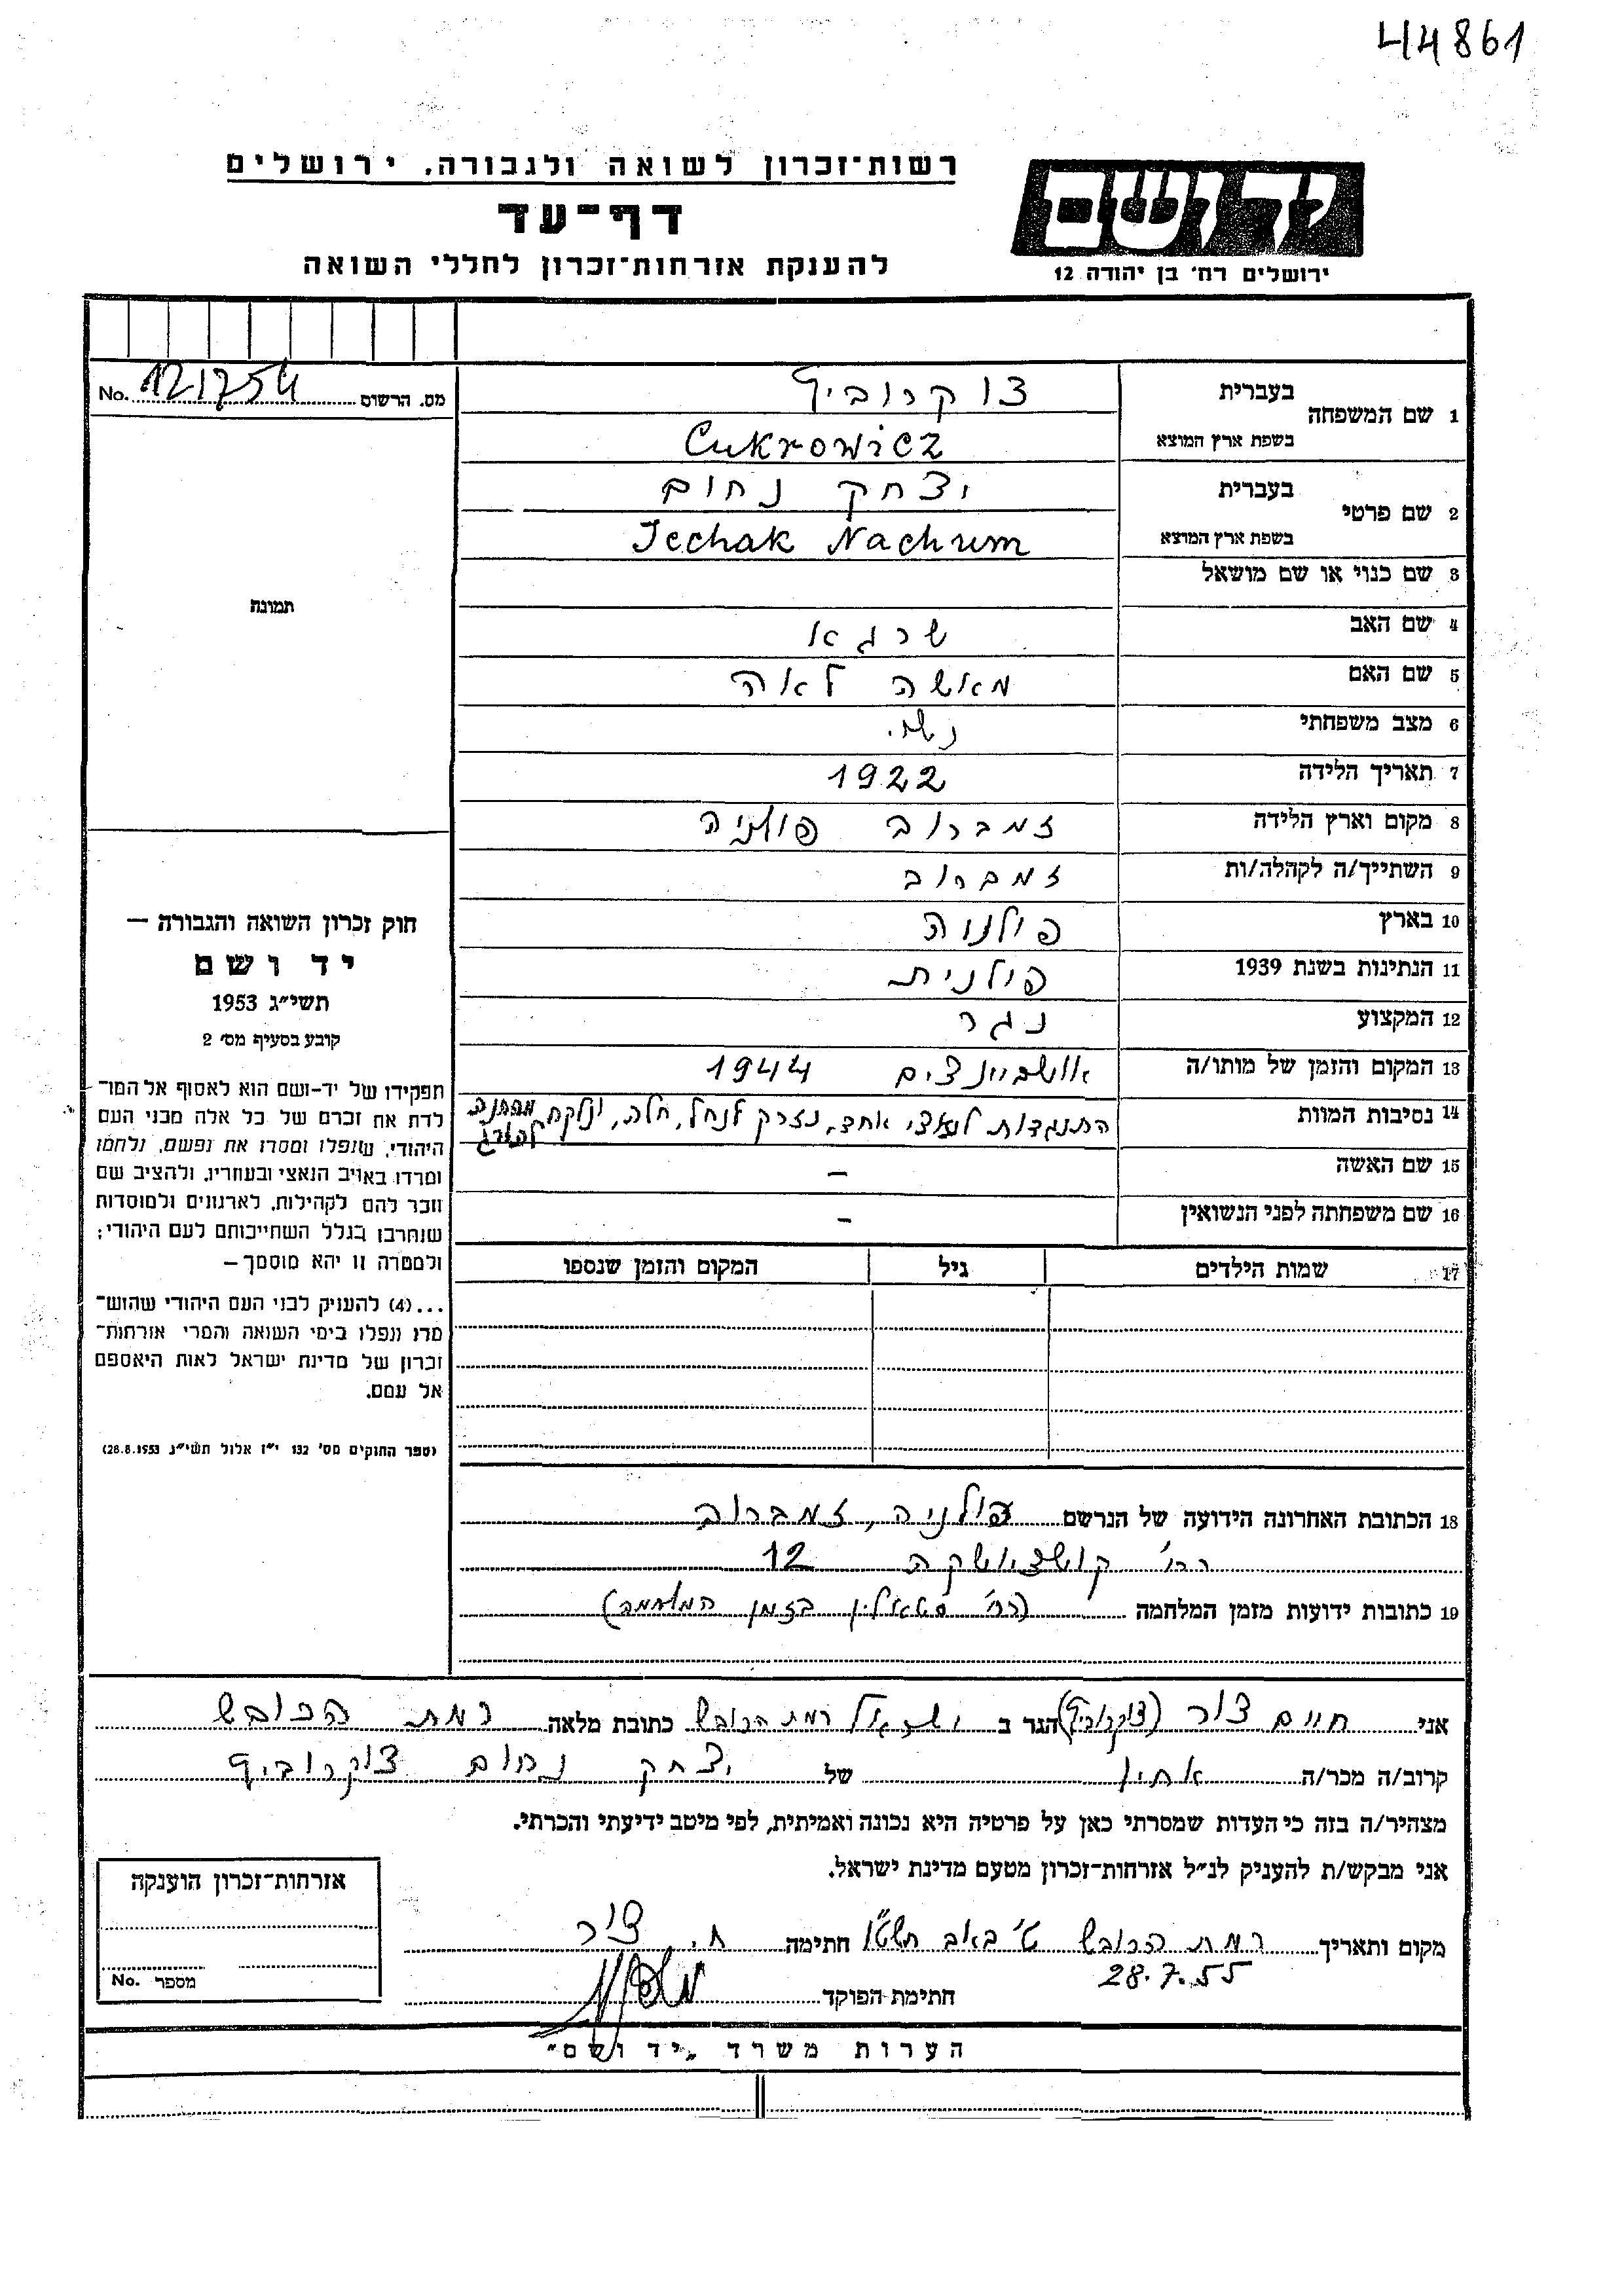 44861
רשות־זכרון לשואה ולגבורה. ירושלים
דף־עד
להענקת אזרחות־זכרון לחללי השואה
ידושם
ירושלים רח׳ בן יהודה 12
מס. הרשום 121754 No.
תמונה
1 שם המשפחה בעברית צוקרוביץ
בשפת ארץ המוצא Cukrowicz
2 שם פרטי בעברית יצחק נחום
בשפת ארץ המוצא Icchak Nachum
3 שם כנוי או שם מושאל
4 שם האב שרגא
5 שם האם מאשה לאה
6 מצב משפחתי
7 תאריך הלידה 1922
8 מקום וארץ הלידה זמברוב פולניה
9 השתייך/ה לקהלה/ות זמברוב
10 בארץ פולניה
11 הנתינות בשנת 1939 פולנית
12 המקצוע נגר
13 המקום והזמן של מותו/ה אושביינצים 1944
14 נסיבות המוות התנגדות לנאצי אחד, נזרק לנחל, חלה, ונלקח מהמחנה להורג
15 שם האשה –
16 שם משפחתה לפני הנשואין –
17 שמות הילדים גיל המקום והזמן שנספו
חוק זכרון השואה והגבורה —
יד ושם
תשי״ג 1953
קובע בסעיף מס׳ 2
תפקידו של יד-ושם הוא לאסוף אל המו־
לדת את זכרם של כל אלה מבני העם
היהודי, שנפלו ומסרו את נפשם, נלחמו
ומרדו באויב הנאצי ובעוזריו, ולהציב שם
וזכר להם לקהילות, לארגונים ולמוסדות
שנחרבו בגלל השתייכותם לעם היהודי;
ולמטרה זו יהא מוסמך —
...(4) להעניק לבני העם היהודי שהוש־
מדו ונפלו בימי השואה והמרי אזרחות־
זכרון של מדינת ישראל לאות היאספם
אל עמם.
(ספר החוקים מס׳ 132 י״ז אלול תשי״ג 28.8.1953)
18 הכתובת האחרונה הידועה של הנרשם פולניה, זמברוב
רח׳ קושצ׳ושקה 12
19 כתובות ידועות מזמן המלחמה (רח׳ סטאלין בזמן המלחמה)
אני חיים צור (צוקרוביץ) הגר ב ישראל רמת הכובש כתובת מלאה רמת הכובש
קרוב/ה מכר/ה אחיו של יצחק נחום צוקרוביץ
מצהיר/ה בזה כי העדות שמסרתי כאן על פרטיה היא נכונה ואמיתית, לפי מיטב ידיעתי והכרתי.
אני מבקש/ת להעניק לנ״ל אזרחות-זכרון מטעם מדינת ישראל.
מקום ותאריך רמת הכובש ט׳ באב תשט״ו חתימה ח. צור
28.7.55
חתימת הפוקד
אזרחות-זכרון הוענקה
מספר No.
הערות משרד „יד ושם״